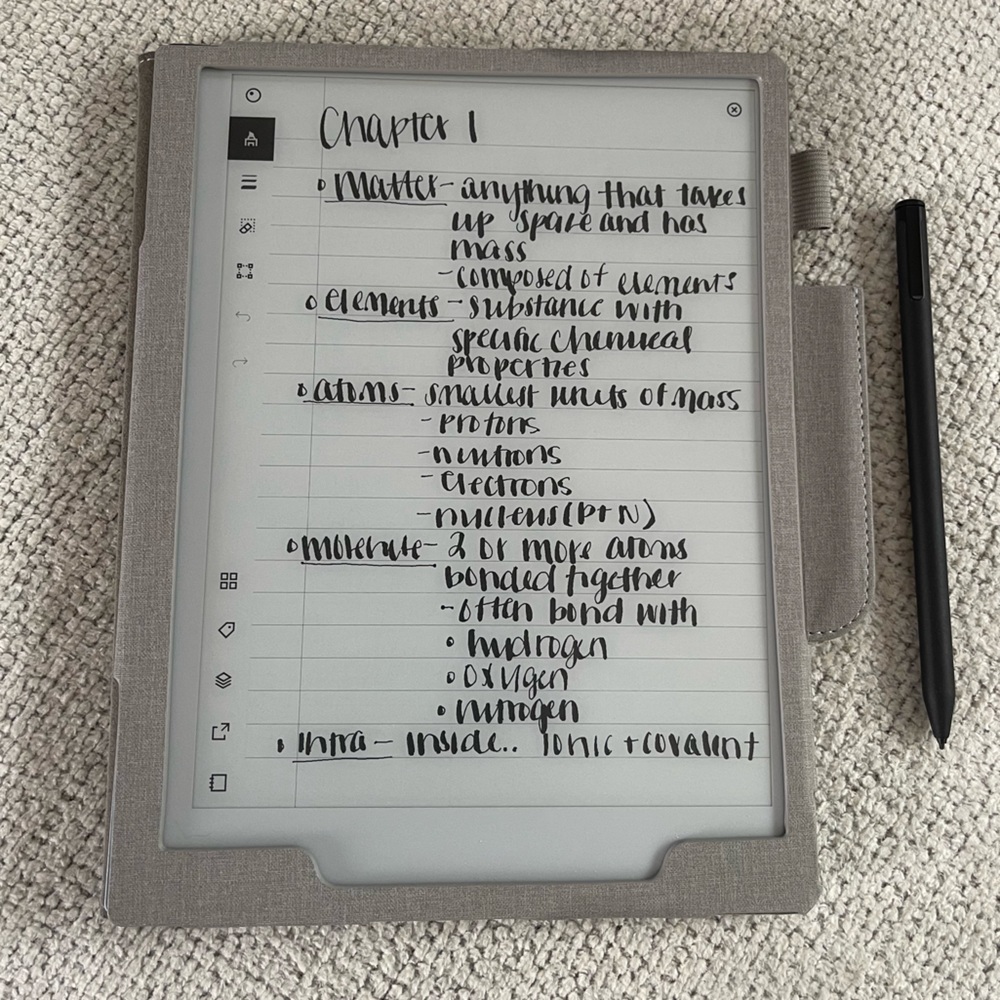 Chapter 1
• Matter - anything that takes
up space and has
mass
- composed of elements
• elements - substance with
specific chemical
properties
• atoms - smallest units of mass
- protons
- neutrons
- electrons
- nucleus (P+N)
• molecule - 2 or more atoms
bonded together
- often bond with
• hydrogen
• oxygen
• nitrogen
• intra - inside.. ionic + covalent